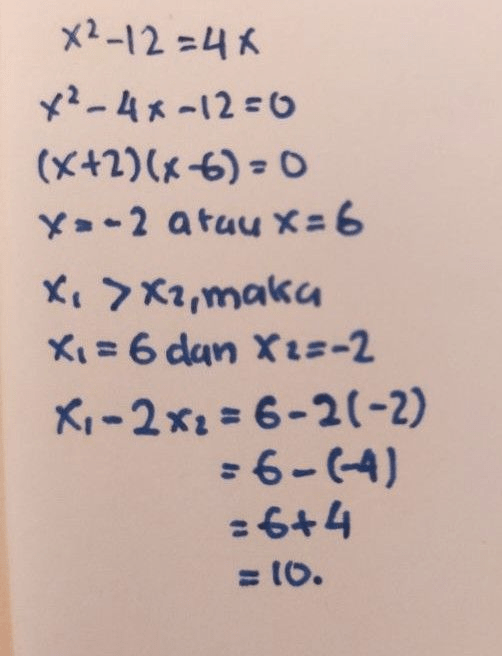 x²-12=4x
x²-4x-12=0
(x+2)(x-6)=0
x=-2 atau x=6
x₁ > x₂, maka
x₁=6 dan x₂=-2
x₁-2x₂ = 6-2(-2)
= 6-(-4)
= 6+4
= 10.